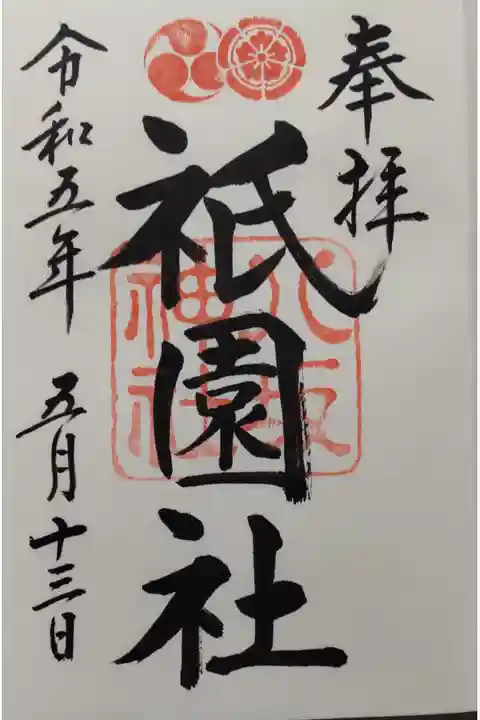 奉拝
祇園社
八坂
神社
令和五年 五月十三日